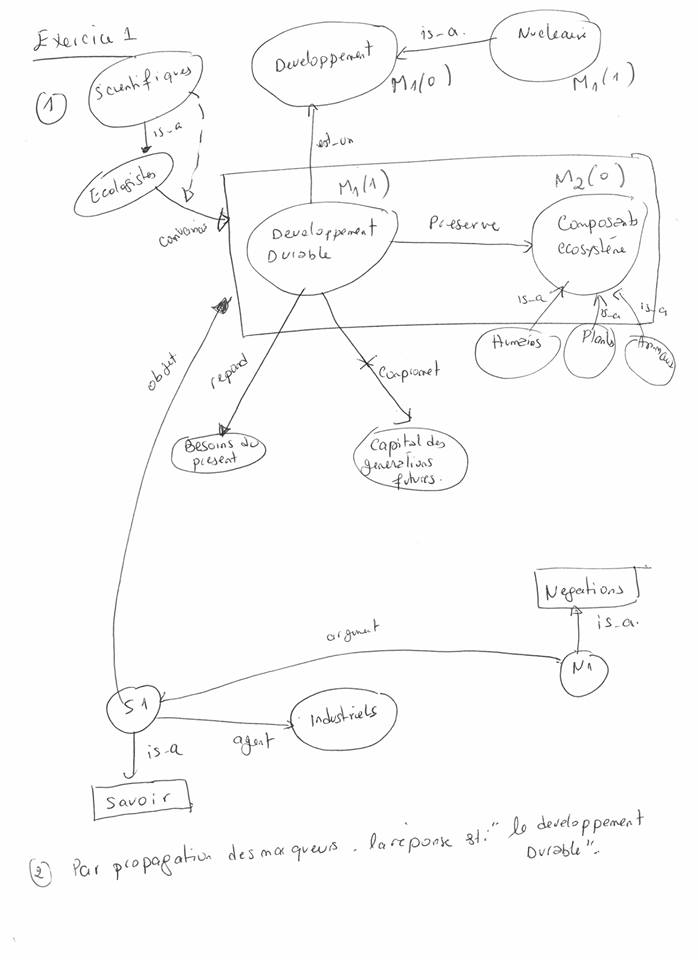 Exercice 1
①
Scientifiques
is_a
Ecologistes
Developpement
M1(0)
is_a.
Nucleaire
M1(1)
est_un
M1(1)
Developpement
Durable
Preserve
M2(0)
Composants
ecosystéme
is_a
is_a
is_a
Humains
Plants
Animaux
objet
repond
Compromet
Besoins du
present
Capital des
generations
futures.
Negations
is_a.
argument
N1
S1
agent
Industriels
is_a
Savoir
② Par propagation des marqueurs. la réponse est: " le developpement
Durable".